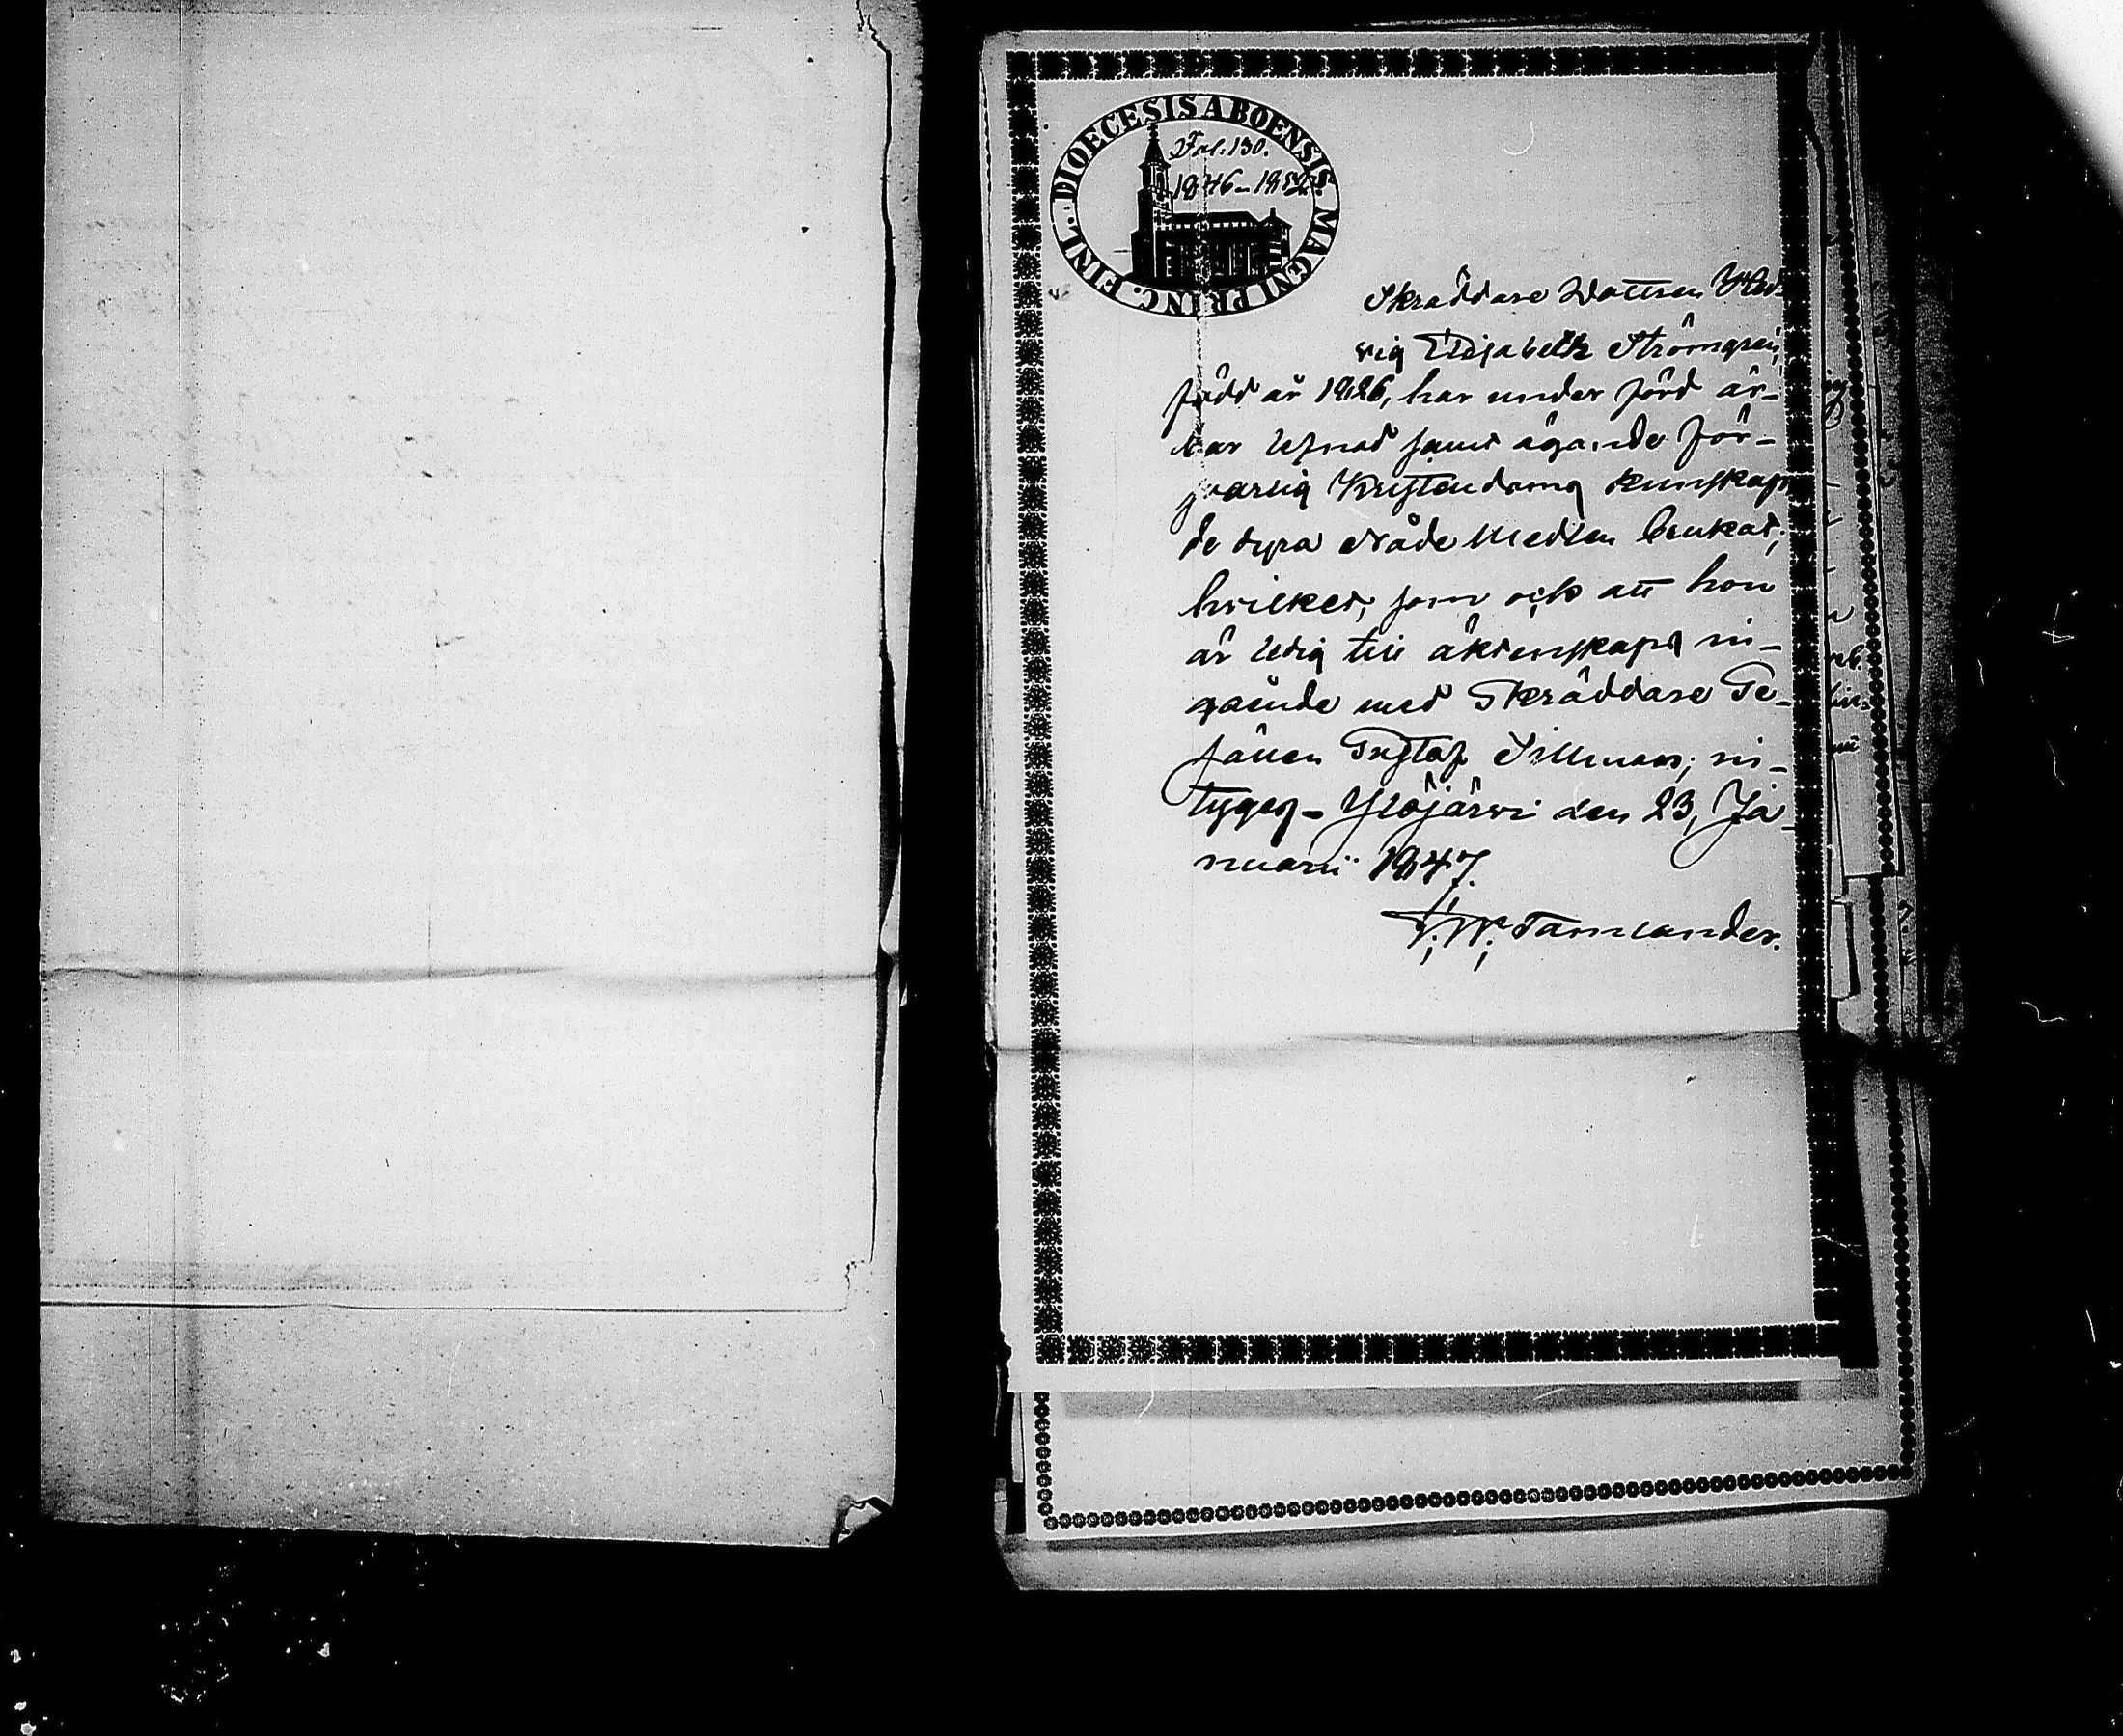 DIOECESIS ABOENSIS. MAGNI PRINC. FINL.
Fol. 130.
1846-1852.
Skräddare Dottren Hed-
vig Elisabeth Strömgren,
född år 1826, har under förd är-
bar lefnad samt ägande för-
svarlig Kristendoms kunskap
de dyra Nåde Medlen brukat;
hvilket, som ock att hon
är ledig till äktenskaps in-
gående med Skräddare Ge-
sällen Gustaf Sillman; in-
tygas - Ylöjärvi den 23, Ja-
nuarii 1847.
F. W. Tamlander.